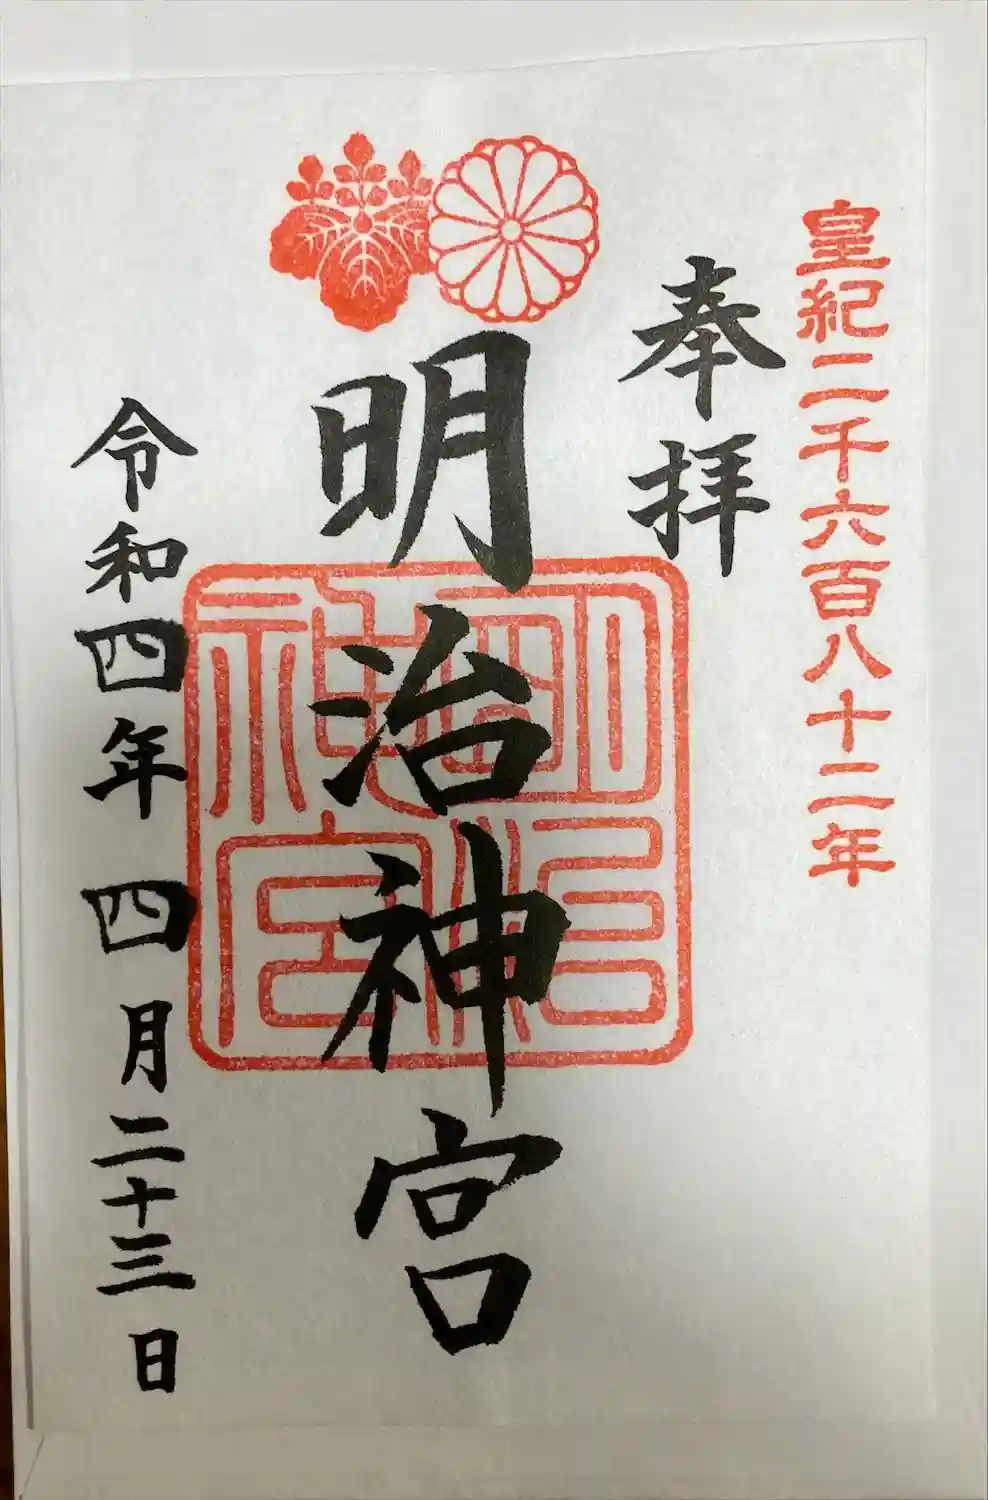 皇紀二千六百八十二年
奉拝
明治神宮
明治
神宮
令和四年四月二十三日